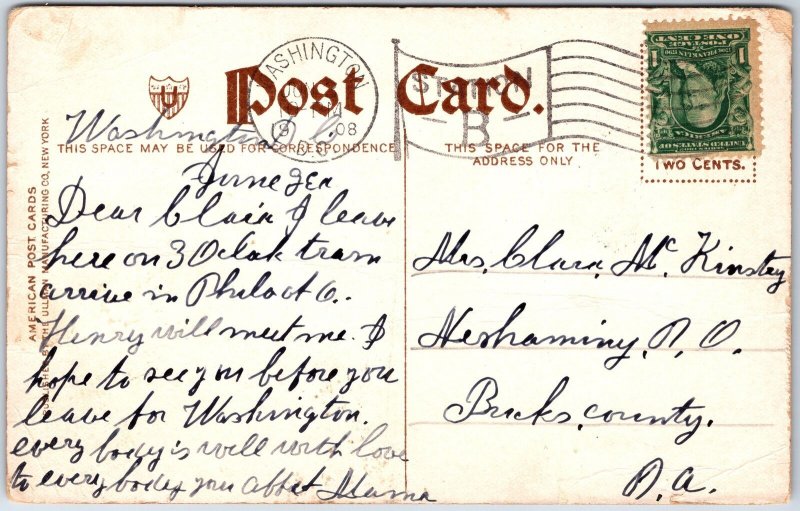 Post Card.
WASHINGTON
1908
D.C.
STATION
B
THIS SPACE MAY BE USED FOR CORRESPONDENCE
THIS SPACE FOR THE
ADDRESS ONLY
UNITED STATES OF
AMERICA
FRANKLIN
POSTAGE
1 ONE CENT 1
TWO CENTS.
AMERICAN POST CARDS
MANUFACTURING CO., NEW YORK
Washington D.C.
June
Dear Clair I leave
here on 3 Oclok train
arrive in Phila at 6.
Henry will meet me. I
hope to see you before you
leave for Washington.
every body is well with love
to every body you Mama
Mrs. Clara. Mc Kinstry
Neshaminy. P. O.
Bucks. county.
P.a.